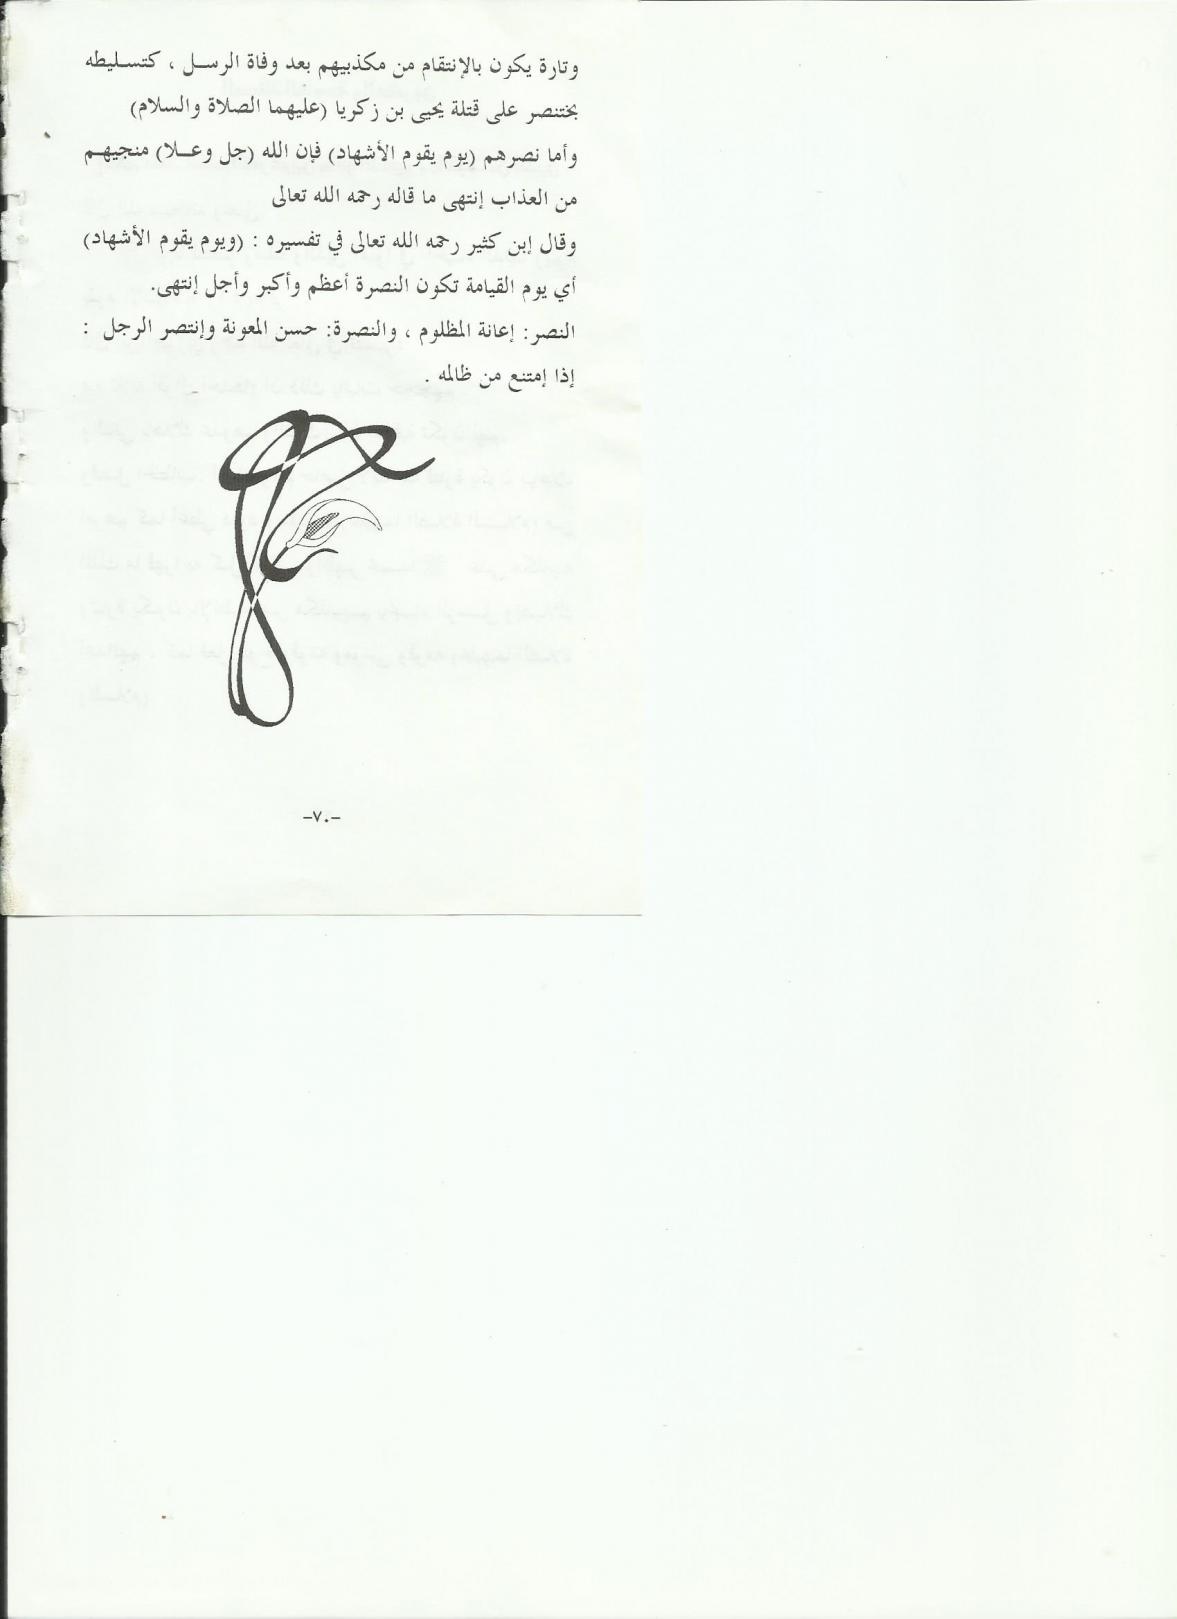 وتارة يكون بالإنتقام من مكذبيهم بعد وفاة الرسل ، كتسليطه
بختنصر على قتلة يحيى بن زكريا (عليهما الصلاة والسلام)
وأما نصرهم (يوم يقوم الأشهاد) فإن الله (جل وعلا) منجيهم
من العذاب إنتهى ما قاله رحمه الله تعالى
وقال إبن كثير رحمه الله تعالى في تفسيره : (ويوم يقوم الأشهاد)
أي يوم القيامة تكون النصرة أعظم وأكبر وأجل إنتهى.
النصر: إعانة المظلوم ، والنصرة: حسن المعونة وإنتصر الرجل :
إذا إمتنع من ظالمه .
-٧٠-